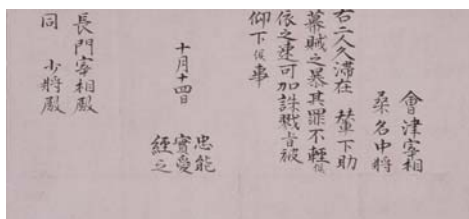 會津宰相
桑名中將
右二人久滞在　輦下助
幕賊之暴其罪不輕候
依之速可加誅戮旨被
仰下候事
十月十四日
忠能
實愛
經之
長門宰相殿
同　少將殿